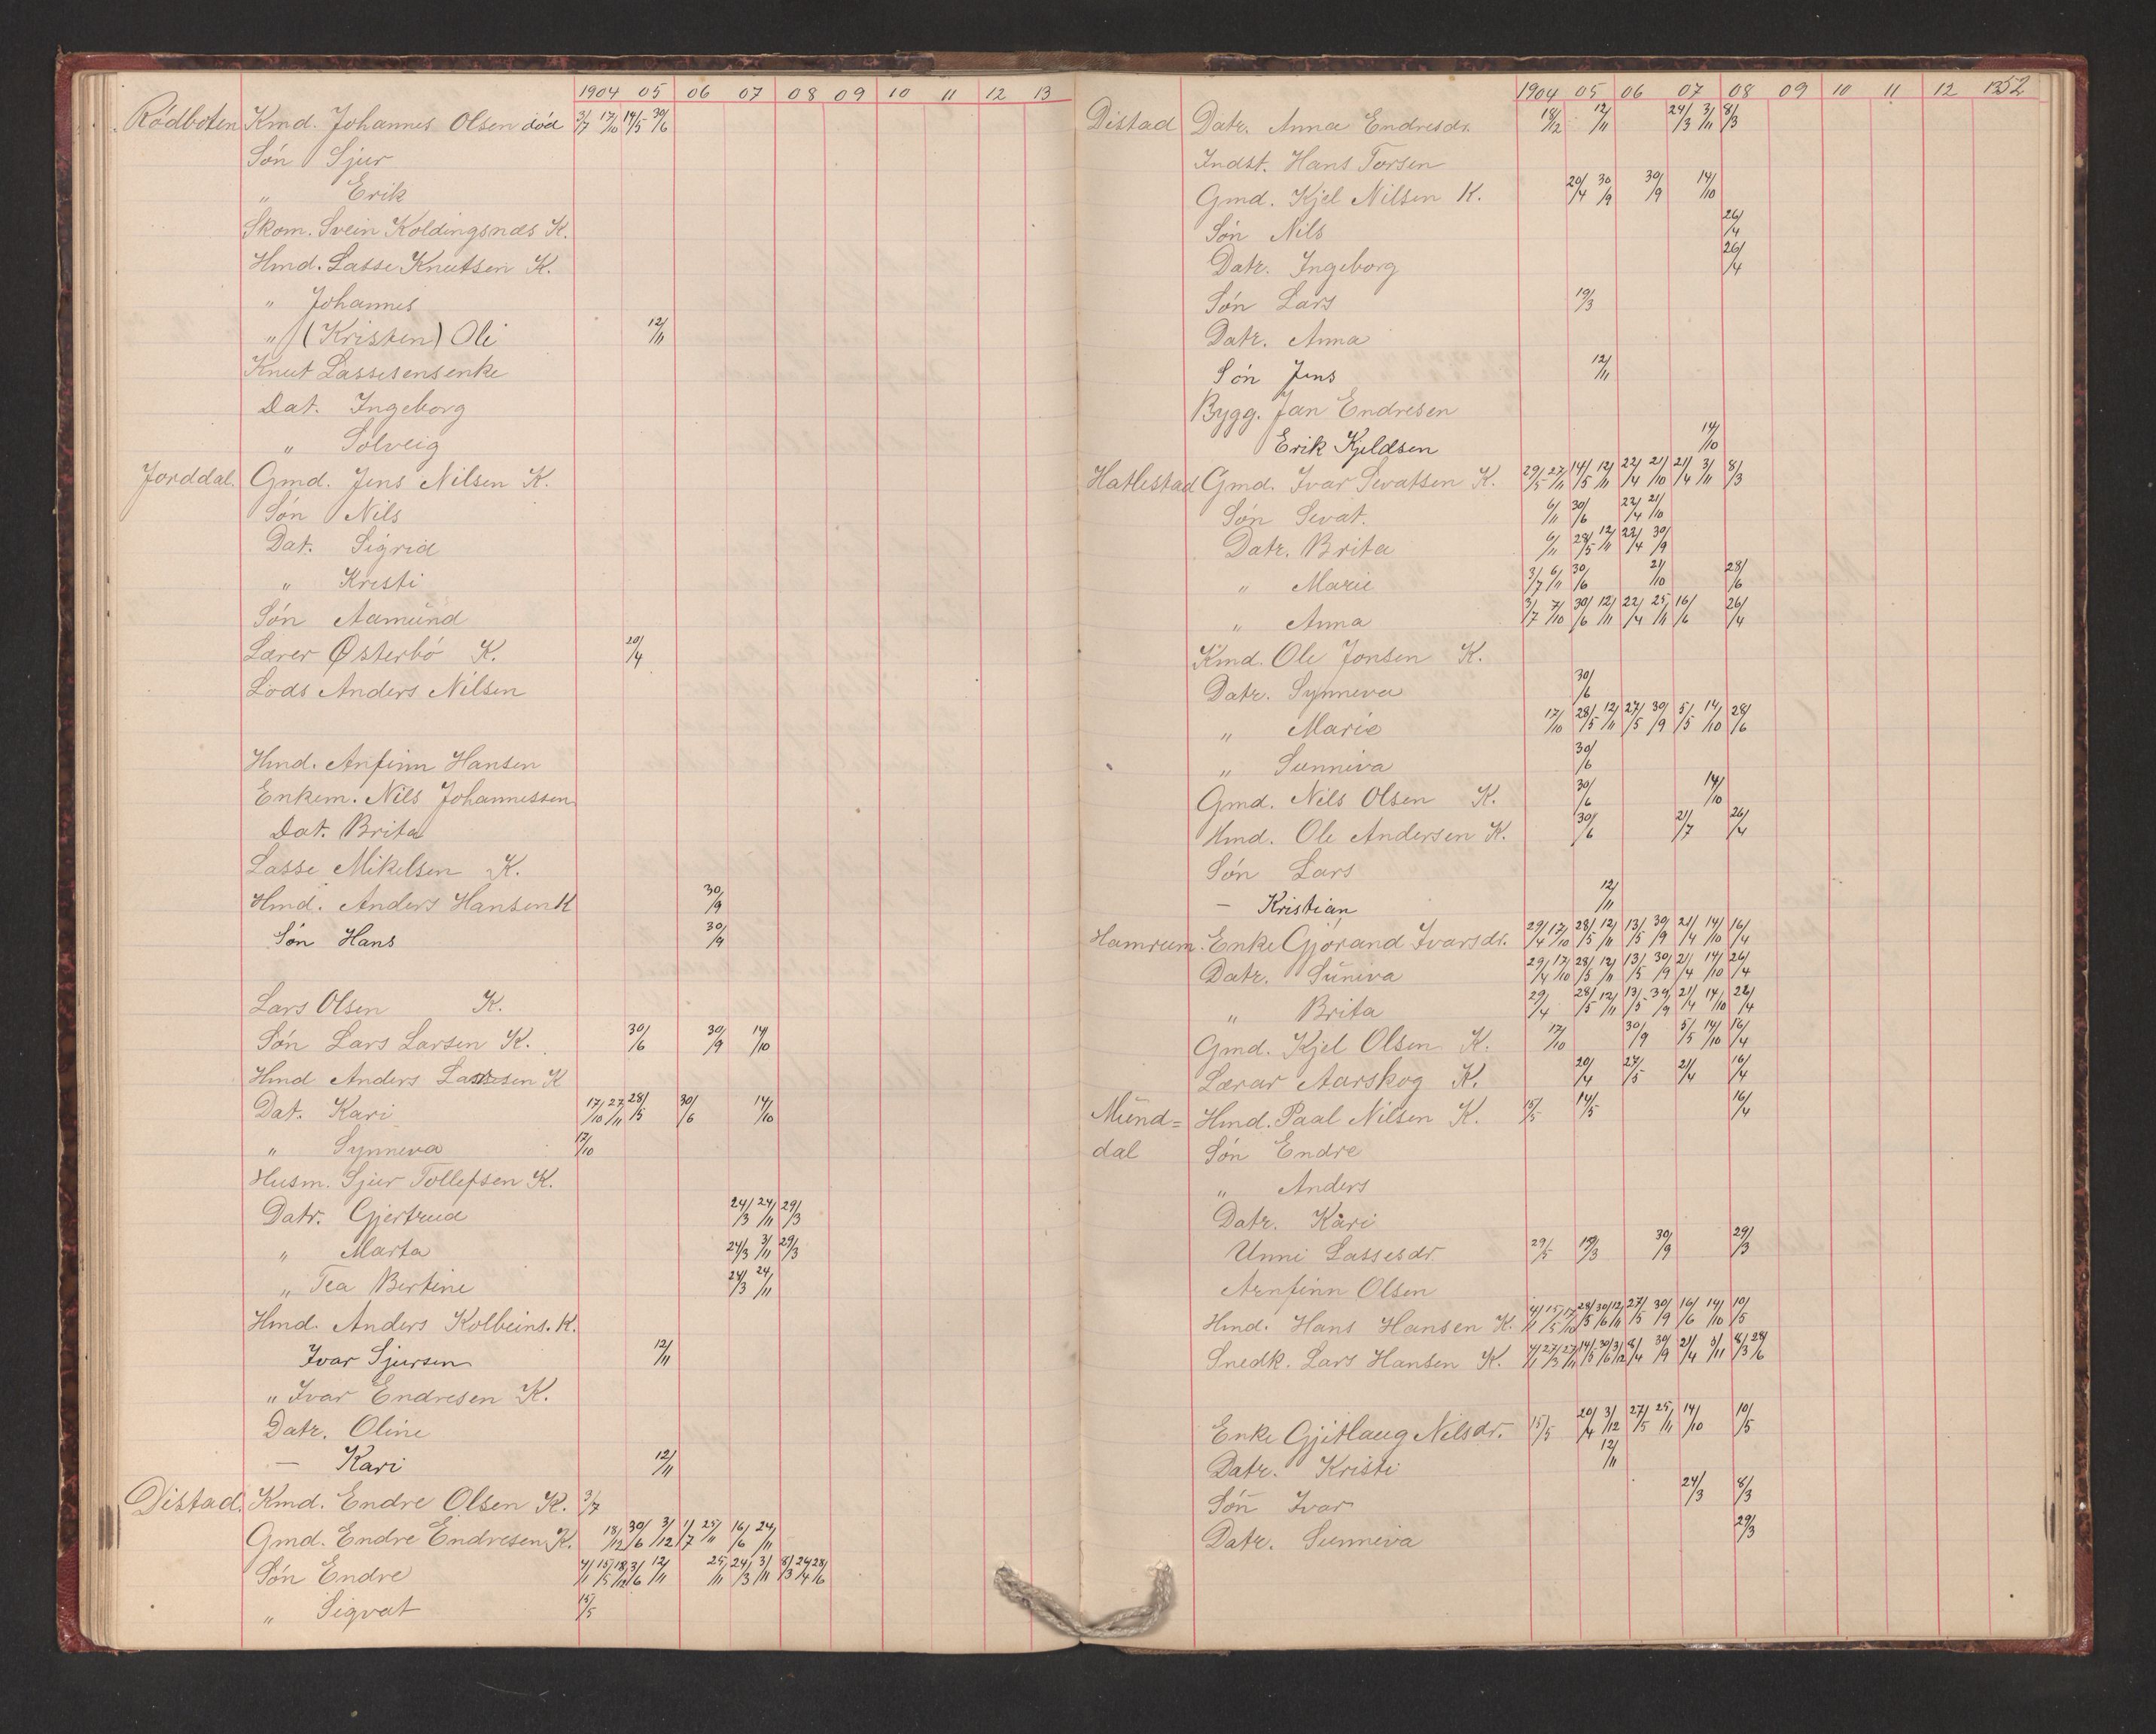 1904 05 06 07 08 09 10 11 12 13
Rödboten Kmd. Johannes Olsen död 3/7 17/10 14/5 30/6
Sön Sjur
" Erik
Skom. Svein Koldingsnæs K.
Hmd. Lasse Knutsen K.
" Johannes
" (Kristen) Oli 12/11
Knut Lassesens enke
Dat. Ingeborg
" Solveig
Jorddal. Gmd. Jens Nilsen K.
Sön Nils
Dat. Sigrid
" Kristi
Sön Aamund
Lærer Østerbö K. 20/4
Lods Anders Nilsen
Hmd. Anfinn Hansen
Enkem. Nils Johannessen
Dat. Brita
Lasse Mikelsen K.
Hmd. Anders Hansen K 30/9
Sön Hans 30/9
Lars Olsen K.
Sön Lars Larsen K. 30/6 30/9 14/10
Hmd Anders Lassesen K
Dat. Kari 17/10 27/11 28/5 30/6 14/10
" Synneva 17/10
Husm. Sjur Tollefsen K.
Datr. Gjertrud 24/3 24/11 29/3
" Marta 24/3 3/11 29/3
" Tea Bertine 24/3 24/11
Hmd. Anders Kolbeins. K.
Ivar Sjursen 12/11
" Ivar Endresen K.
Datr. Oline
— Kari 12/11
Distad. Kmd. Endre Olsen K. 3/7
Gmd. Endre Endresen K. 18/12 30/6 3/12 1/7 25/11 16/6 24/11
Sön Endre 4/1 15/5 18/12 3/6 12/11 25/11 24/3 3/11 8/3 24/4 28/6
" Sigvat 15/5
1904 05 06 07 08 09 10 11 12 13 52
Distad Datr. Anna Endresdr. 18/12 12/11 24/3 3/11 8/3
Indst. Hans Torsen
Gmd. Kjel Nilsen K. 20/4 30/9 30/9 14/10
Sön Nils 26/4
Datr. Ingeborg 26/4
Sön Lars 19/3
Datr. Anna
Sön Jens 12/11
Bygg. Jan Endresen
Erik Kjeldsen 14/10
Hatlestad Gmd. Ivar Sevatsen K. 29/5 27/11 14/5 12/11 22/4 21/10 21/4 3/11 8/3
Sön Sevat. 6/11 30/6 22/4 21/10
Datr. Brita 6/11 28/5 12/11 22/4 30/9
" Marie 3/7 6/11 30/6 21/10 28/6
" Anna 3/7 7/10 30/6 12/11 22/4 25/11 16/6 26/4
Kmd. Ole Jonsen K.
Datr. Synneva 30/6
" Marie 17/10 28/5 12/11 27/5 30/9 5/5 14/10 28/6
" Sunniva 30/6
Gmd. Nils Olsen K. 30/6 14/10
Hmd. Ole Andersen K. 30/6 21/7 26/4
Sön Lars
— Kristian 12/11
Hamrum. Enke Gjörand Ivarsdr. 29/4 17/10 28/5 12/11 13/5 30/9 21/4 14/10 16/4
Datr. Suniva 29/4 17/10 28/5 12/11 13/5 30/9 21/4 14/10 26/4
" Brita 29/4 28/5 12/11 13/5 30/9 21/4 14/10 26/4
Gmd. Kjel Olsen K. 17/10 30/9 5/5 14/10 16/4
Lærar Aarskog K. 20/4 27/5 21/4 16/4
Mund= Hmd. Paal Nilsen K. 15/5 14/5 16/4
dal Sön Endre
" Anders
Datr. Kari
Unni Lassesdr 29/5 19/3 30/9 29/3
Arnfinn Olsen
Hmd. Hans Hansen K. 4/1 15/5 17/10 28/5 30/6 12/11 27/5 30/9 16/6 14/10 10/5
Snedk. Lars Hansen K. 4/1 27/3 27/11 14/5 30/6 3/12 8/4 30/9 21/4 3/11 8/3 28/6
Enke Gjitlaug Nilsdr. 15/5 20/4 3/12 27/5 25/11 14/10 10/5
Datr. Kristi 12/11
Sön Ivar 24/3 8/3
Datr. Sunniva 29/3